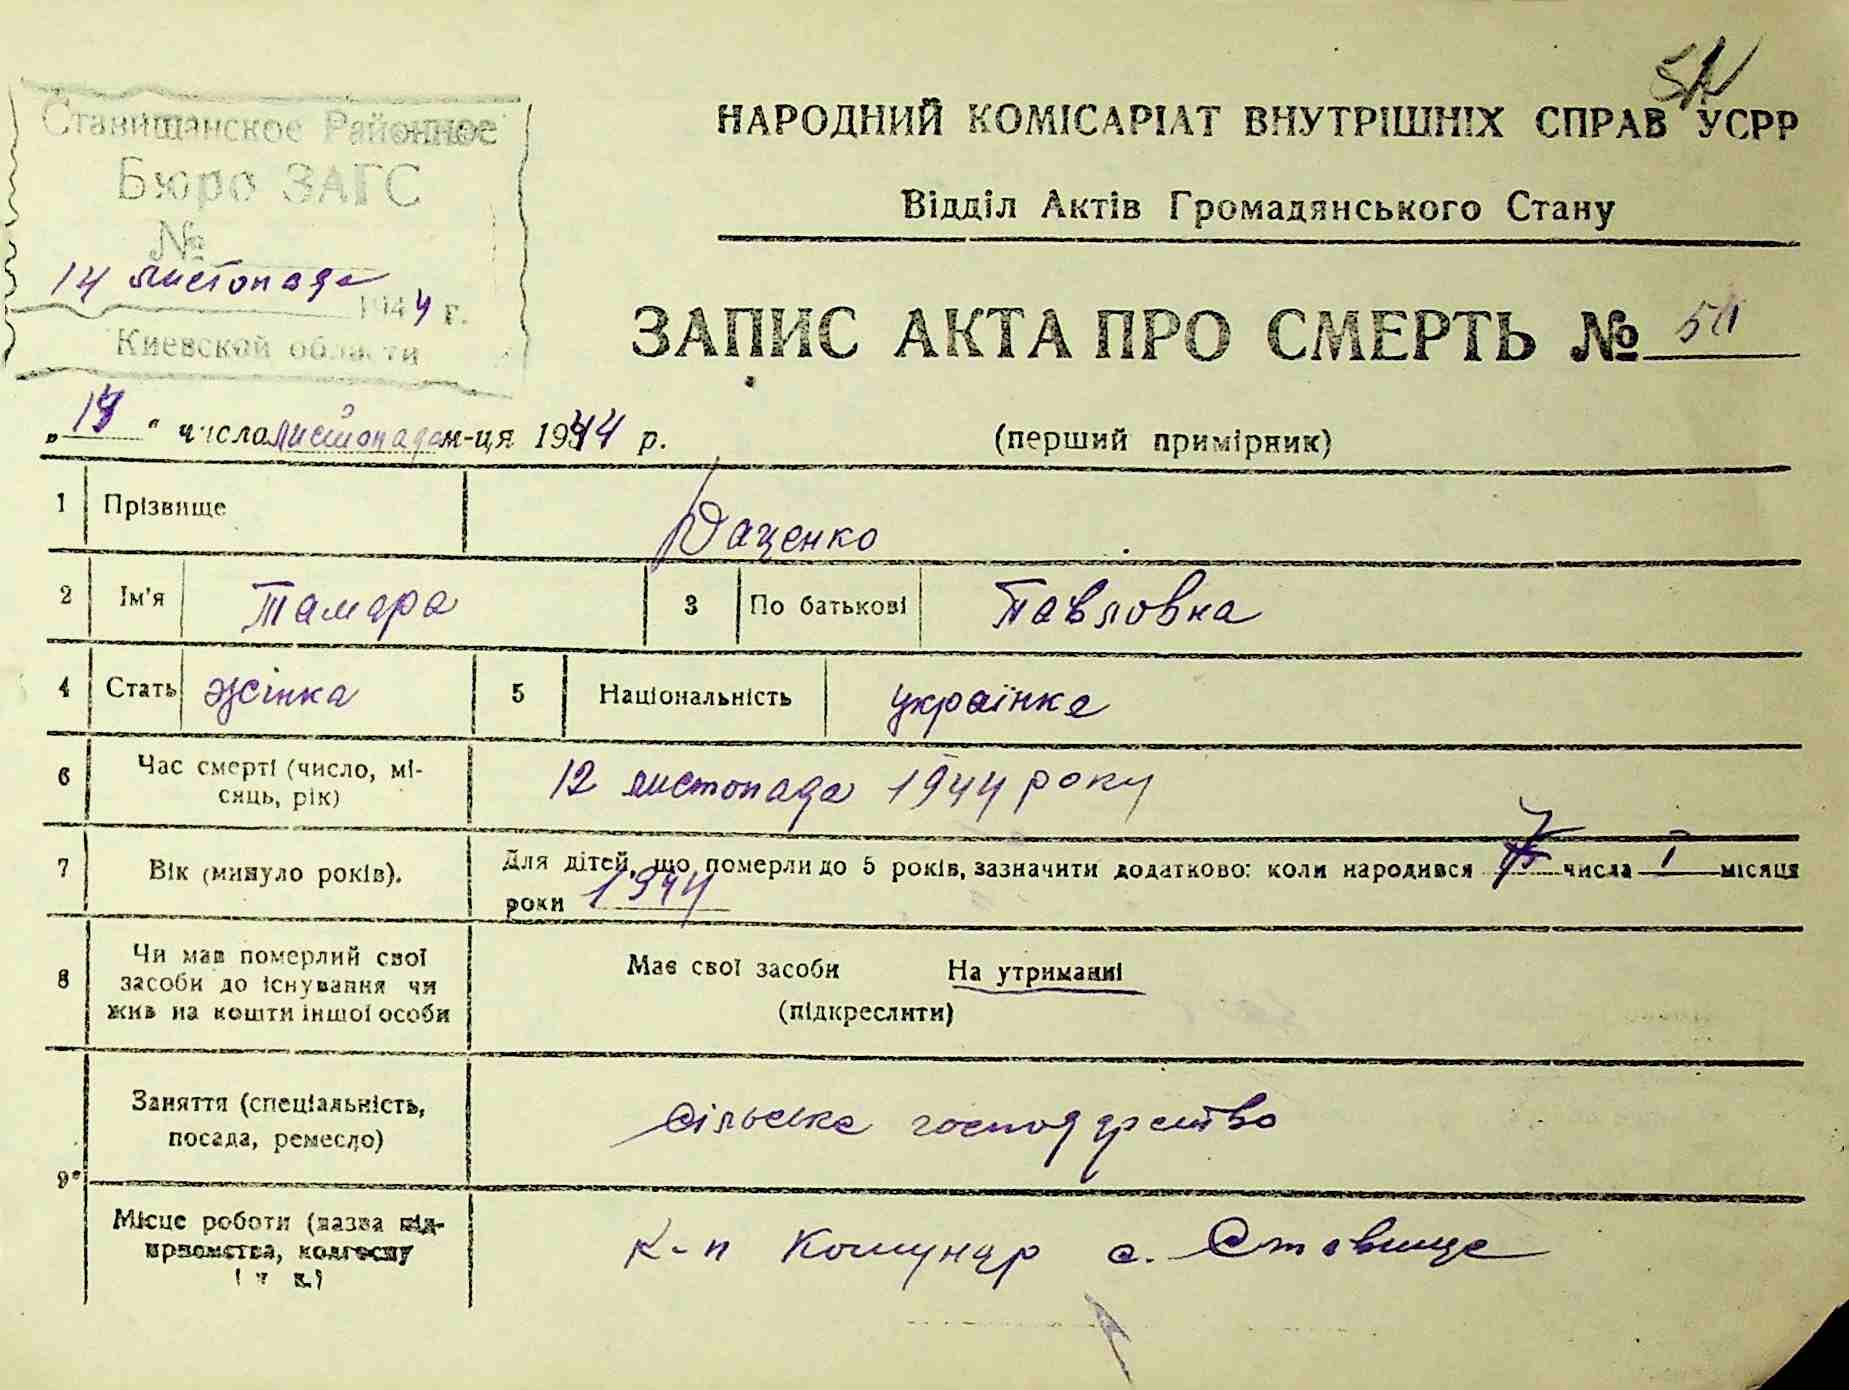 Станишанское Районное
Бюро ЗАГС
№
14 листопада
1944 г.
Киевской области
НАРОДНИЙ КОМІСАРІАТ ВНУТРІШНІХ СПРАВ УСРР
Відділ Актів Громадянського Стану
ЗАПИС АКТА ПРО СМЕРТЬ №
„14“ число листопада м-ця 1944 р.
(перший примірник)
1 Прізвище Яаценко
2 Ім'я Тамара 3 По батькові Павловна
4 Стать жінка 5 Національність українка
6 Час смерті (число, мі-
сяць, рік) 12 листопада 1944 року
7 Вік (минуло років). Для дітей, що померли до 5 років, зазначити додатково: коли народився числа І місяця
роки 1944
8 Чи мав померлий свої
засоби до існування чи
жив на кошти іншої особи
Має свої засоби На утриманні
(підкреслити)
9 Заняття (спеціальність,
посада, ремесло) сільське господарство
Місце роботи (назва під-
приємства, колгоспу
і т. п.) к-п Комунар с. Ставище